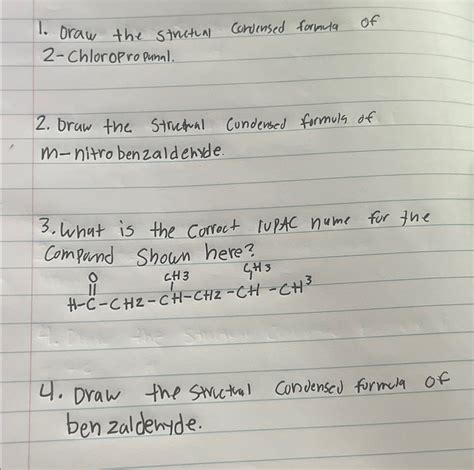 1. Draw the structual Condensed formula of
2-Chloropropanal.
2. Draw the Structual Cundensed formula of
m-nitrobenzaldehyde.
3. What is the Correct IUPAC name for the
Compound Shown here?
O CH3 CH3
H-C-CH2-CH-CH2-CH-CH3
4. Draw the structual Condensed formula of
benzaldehyde.